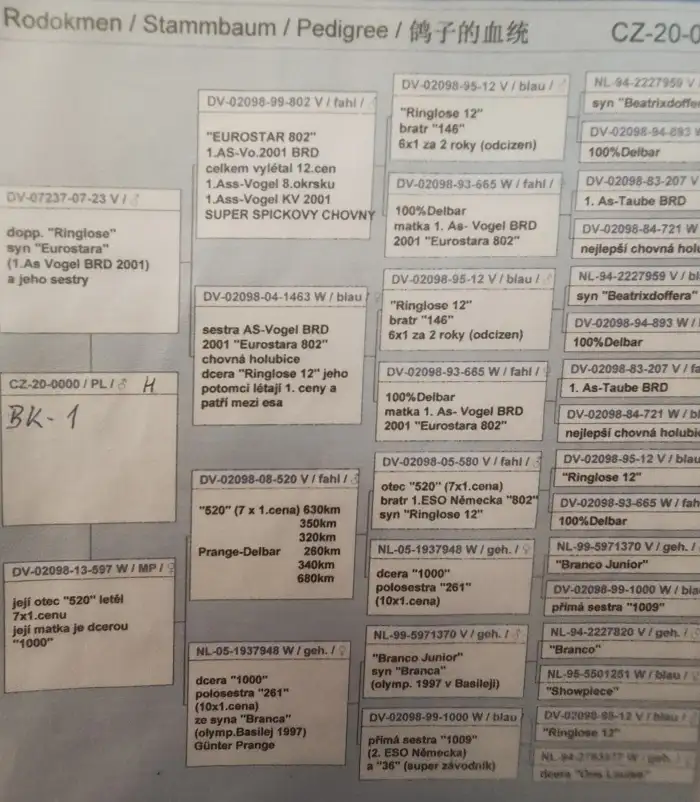 Rodokmen / Stammbaum / Pedigree / 鸽子的血统
CZ-20-0
DV-07237-07-23 V / ♂
dopp. "Ringlose"
syn "Eurostara"
(1.As Vogel BRD 2001)
a jeho sestry
CZ-20-0000 / PL / ♂ H
BK-1
DV-02098-13-597 W / MP / ♀
její otec "520" letěl
7x1.cenu
její matka je dcerou
"1000"
DV-02098-99-802 V / fahl / ♂
"EUROSTAR 802"
1.AS-Vo.2001 BRD
celkem vylétal 12.cen
1.Ass-Vogel 8.okrsku
1.Ass-Vogel KV 2001
SUPER SPICKOVY CHOVNY
DV-02098-04-1463 W / blau /
sestra AS-Vogel BRD
2001 "Eurostara 802"
chovná holubice
dcera "Ringlose 12" jeho
potomci létají 1. ceny a
patří mezi esa
DV-02098-08-520 V / fahl / ♂
"520" (7 x 1.cena) 630km
350km
320km
Prange-Delbar 260km
340km
680km
NL-05-1937948 W / geh. / ♀
dcera "1000"
polosestra "261"
(10x1.cena)
ze syna "Branca"
(olymp.Basilej 1997)
Günter Prange
DV-02098-95-12 V / blau /
"Ringlose 12"
bratr "146"
6x1 za 2 roky (odcizen)
DV-02098-93-665 W / fahl /
100%Delbar
matka 1. As- Vogel BRD
2001 "Eurostara 802"
DV-02098-95-12 V / blau /
"Ringlose 12"
bratr "146"
6x1 za 2 roky (odcizen)
DV-02098-93-665 W / fahl /
100%Delbar
matka 1. As- Vogel BRD
2001 "Eurostara 802"
DV-02098-05-580 V / fahl / ♂
otec "520" (7x1.cena)
bratr 1.ESO Německa "802"
syn "Ringlose 12"
NL-05-1937948 W / geh. / ♀
dcera "1000"
polosestra "261"
(10x1.cena)
NL-99-5971370 V / geh. / ♂
"Branco Junior"
syn "Branca"
(olymp. 1997 v Basileji)
DV-02098-99-1000 W / blau
přímá sestra "1009"
(2. ESO Německa)
a "36" (super závodník)
NL-94-2227959 V /
syn "Beatrixdoffera
DV-02098-94-893 W
100%Delbar
DV-02098-83-207 V /
1. As-Taube BRD
DV-02098-84-721 W
nejlepší chovná holu
NL-94-2227959 V / bl
syn "Beatrixdoffera"
DV-02098-94-893 W /
100%Delbar
DV-02098-83-207 V / fa
1. As-Taube BRD
DV-02098-84-721 W / bl
nejlepší chovná holubic
DV-02098-95-12 V / blau
"Ringlose 12"
DV-02098-93-665 W / fah
100%Delbar
NL-99-5971370 V / geh. /
"Branco Junior"
DV-02098-99-1000 W / bla
přímá sestra "1009"
NL-94-2227820 V / geh. / ♂
"Branco"
NL-95-5501251 W / blau /
"Showpiece"
DV-02098-95-12 V / blau /
"Ringlose 12"
W / geh. /
dcera